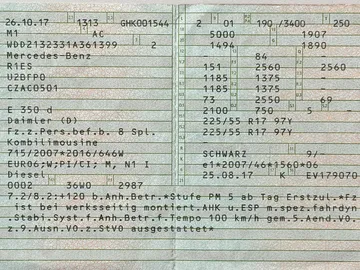 26.10.17 1313 GHK001544 2 01 190 /3400 250
M1 AC 5000 1907
WDD2132331A361399 2 1494 1890
Mercedes-Benz 84
R1ES 151 2560 2560
U2BFP0 1185 1375 -
CZAC0501 1185 1375 -
73 2550 69
E 350 d 2100 750 5 -
Daimler (D) 225/55 R17 97Y
Fz.z.Pers.bef.b. 8 Spl. 225/55 R17 97Y
Kombilimousine -
715/2007*2016/646W SCHWARZ 9/
EURO6;W;PI/CI; M, N1 I e1*2007/46*1560*06
Diesel 25.08.17 K EV179070
0002 36W0 2987
7.2/8.2:+120 b.Anh.Betr.*Stufe PM 5 ab Tag Erstzul.*Fz
ist bei werksseitig montiert.AHK u.ESP m.spez.fahrdyn
.Stabi.Syst.f.Anh.Betr.f.Tempo 100 km/h gem.5.Aend.V0.
z.9.Ausn.V0.z.StV0 ausgestattet*